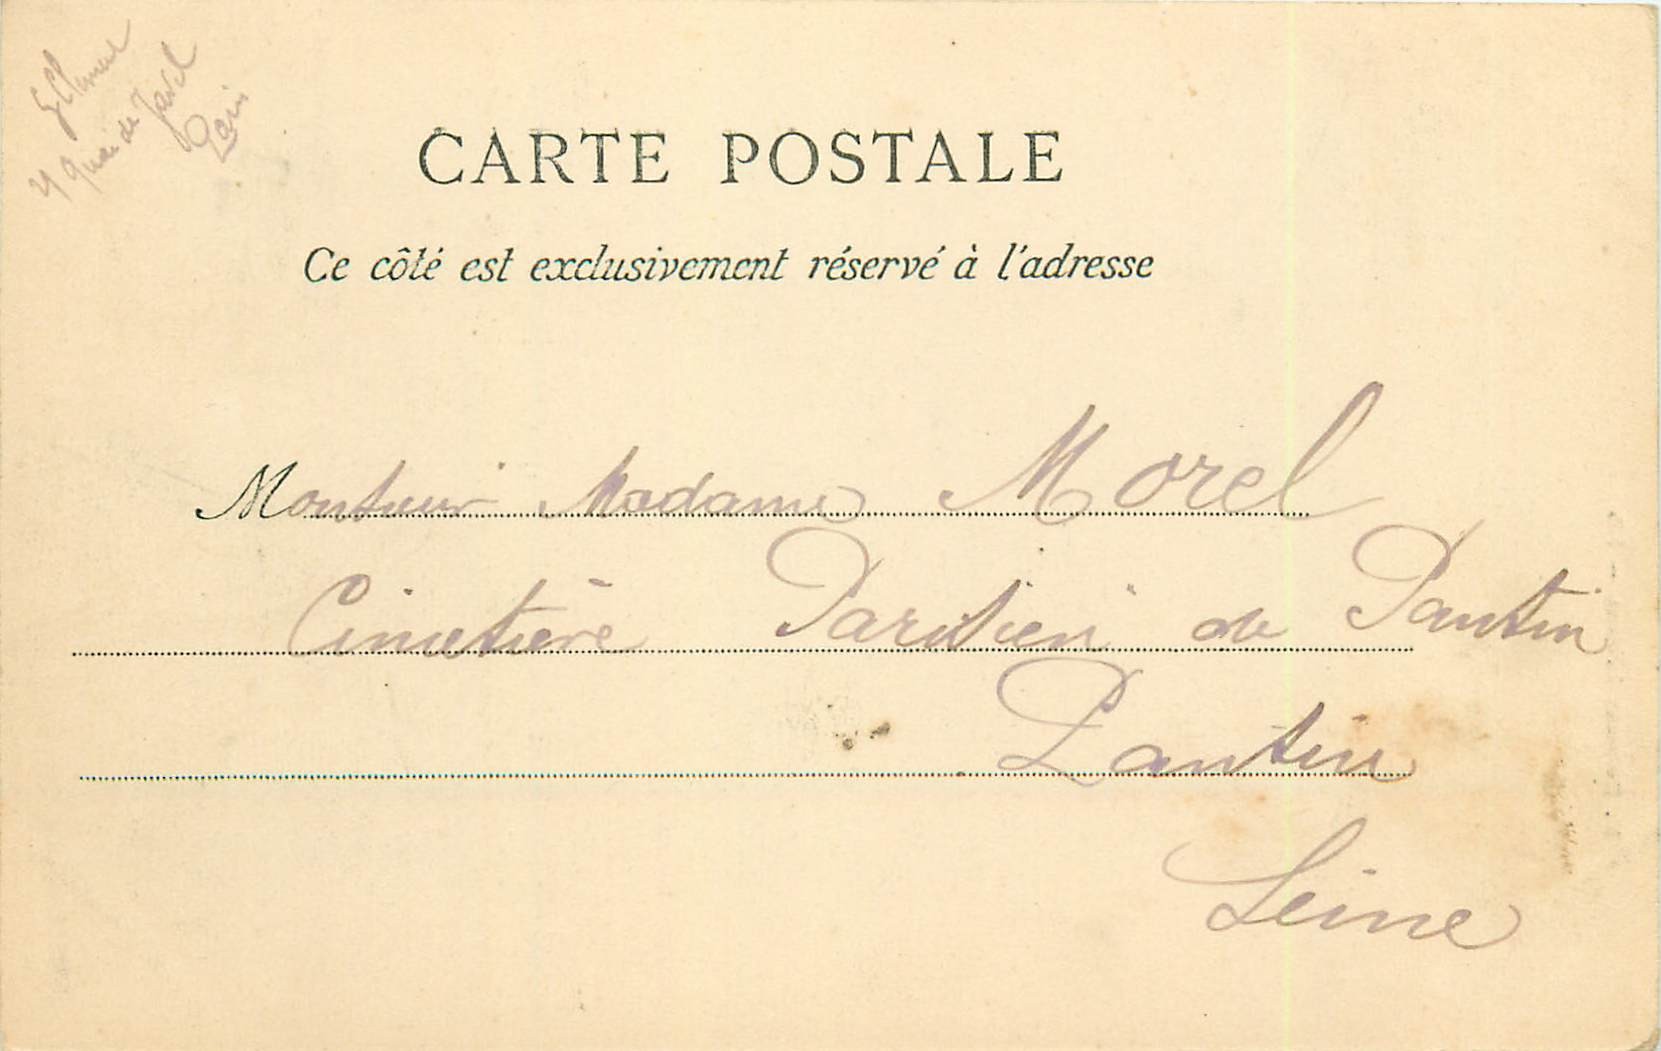 Quai de Javel
Paris
CARTE POSTALE
Ce côté est exclusivement réservé à l'adresse
Monsieur Madame Morel
Cimetière Parisien de Pantin
Pantin
Seine